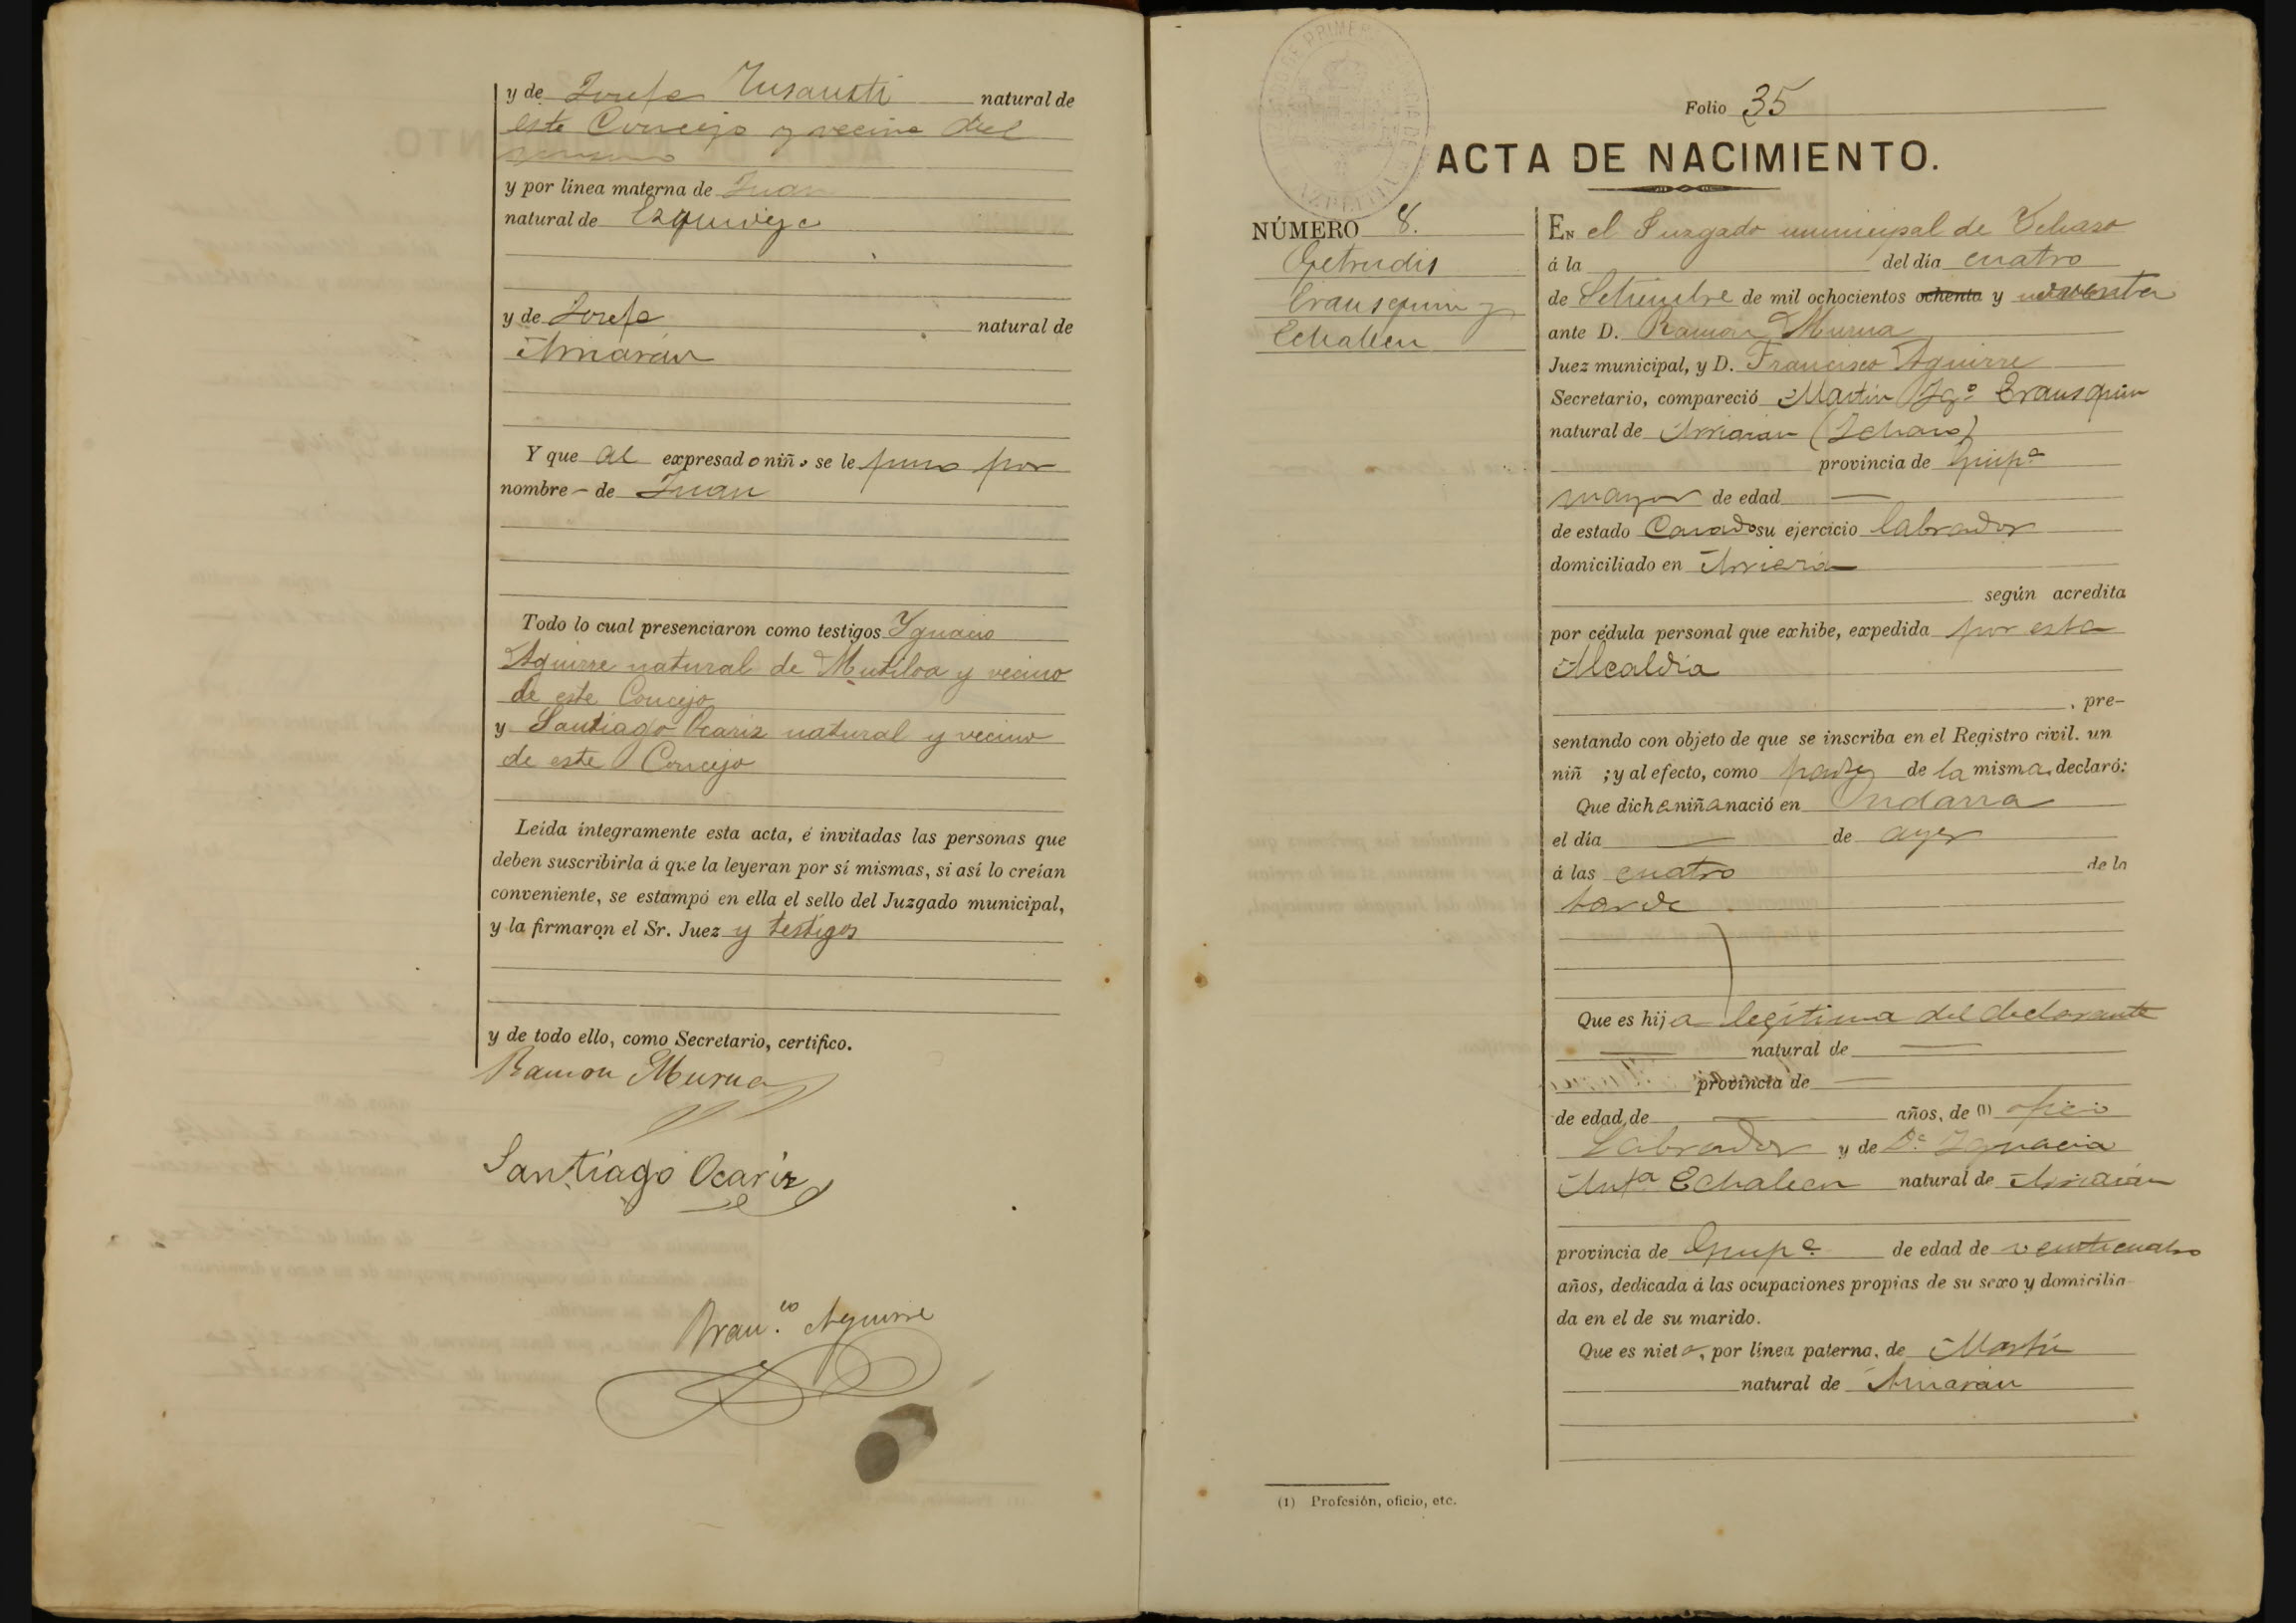 y de Josefa Yusausti natural de
este Concejo y vecina del
mismo
y por línea materna de Juan
natural de Ezquioga
y de Josefa natural de
Arriarán
Y que al expresado niño se le puso por
nombre - de Juan
Todo lo cual presenciaron como testigos Ygnacio
Aguirre natural de Mutiloa y vecino
de este Concejo
y Santiago Ocariz natural y vecino
de este Concejo
Leída íntegramente esta acta, é invitadas las personas que
deben suscribirla á que la leyeran por sí mismas, si así lo creían
conveniente, se estampó en ella el sello del Juzgado municipal,
y la firmaron el Sr. Juez y testigos
y de todo ello, como Secretario, certifico.
Ramon Murua
Santiago Ocariz
Fran.co Aguirre
Folio 35
ACTA DE NACIMIENTO.
NÚMERO 8.
Getrudis
Erausquin y
Echalecu
EN el Juzgado municipal de Ychaso
á la del día cuatro
de Setiembre de mil ochocientos ochenta y noventa
ante D. Ramon Murua
Juez municipal, y D. Francisco Aguirre
Secretario, compareció Martin Ygº Erausquin
natural de Arriaran (Ichaso)
provincia de Guipª
mayor de edad —
de estado Casado su ejercicio labrador
domiciliado en Arriarán
según acredita
por cédula personal que exhibe, expedida por esta
Alcaldia
, pre-
sentando con objeto de que se inscriba en el Registro civil. un
niñ ; y al efecto, como padre de la misma declaró:
Que dicha niña nació en Indarra
el día — de ayer
á las cuatro de la
tarde
Que es hija legítima del declarante
— natural de —
provincia de —
de edad de — años, de (1) oficio
Labrador y de Dª Ygnacia
Antª Echalecu natural de Arriarán
provincia de Guipª de edad de veinticuatro
años, dedicada á las ocupaciones propias de su sexo y domicilia-
da en el de su marido.
Que es nieta, por línea paterna, de Martin
natural de Arriarán
(1) Profesión, oficio, etc.